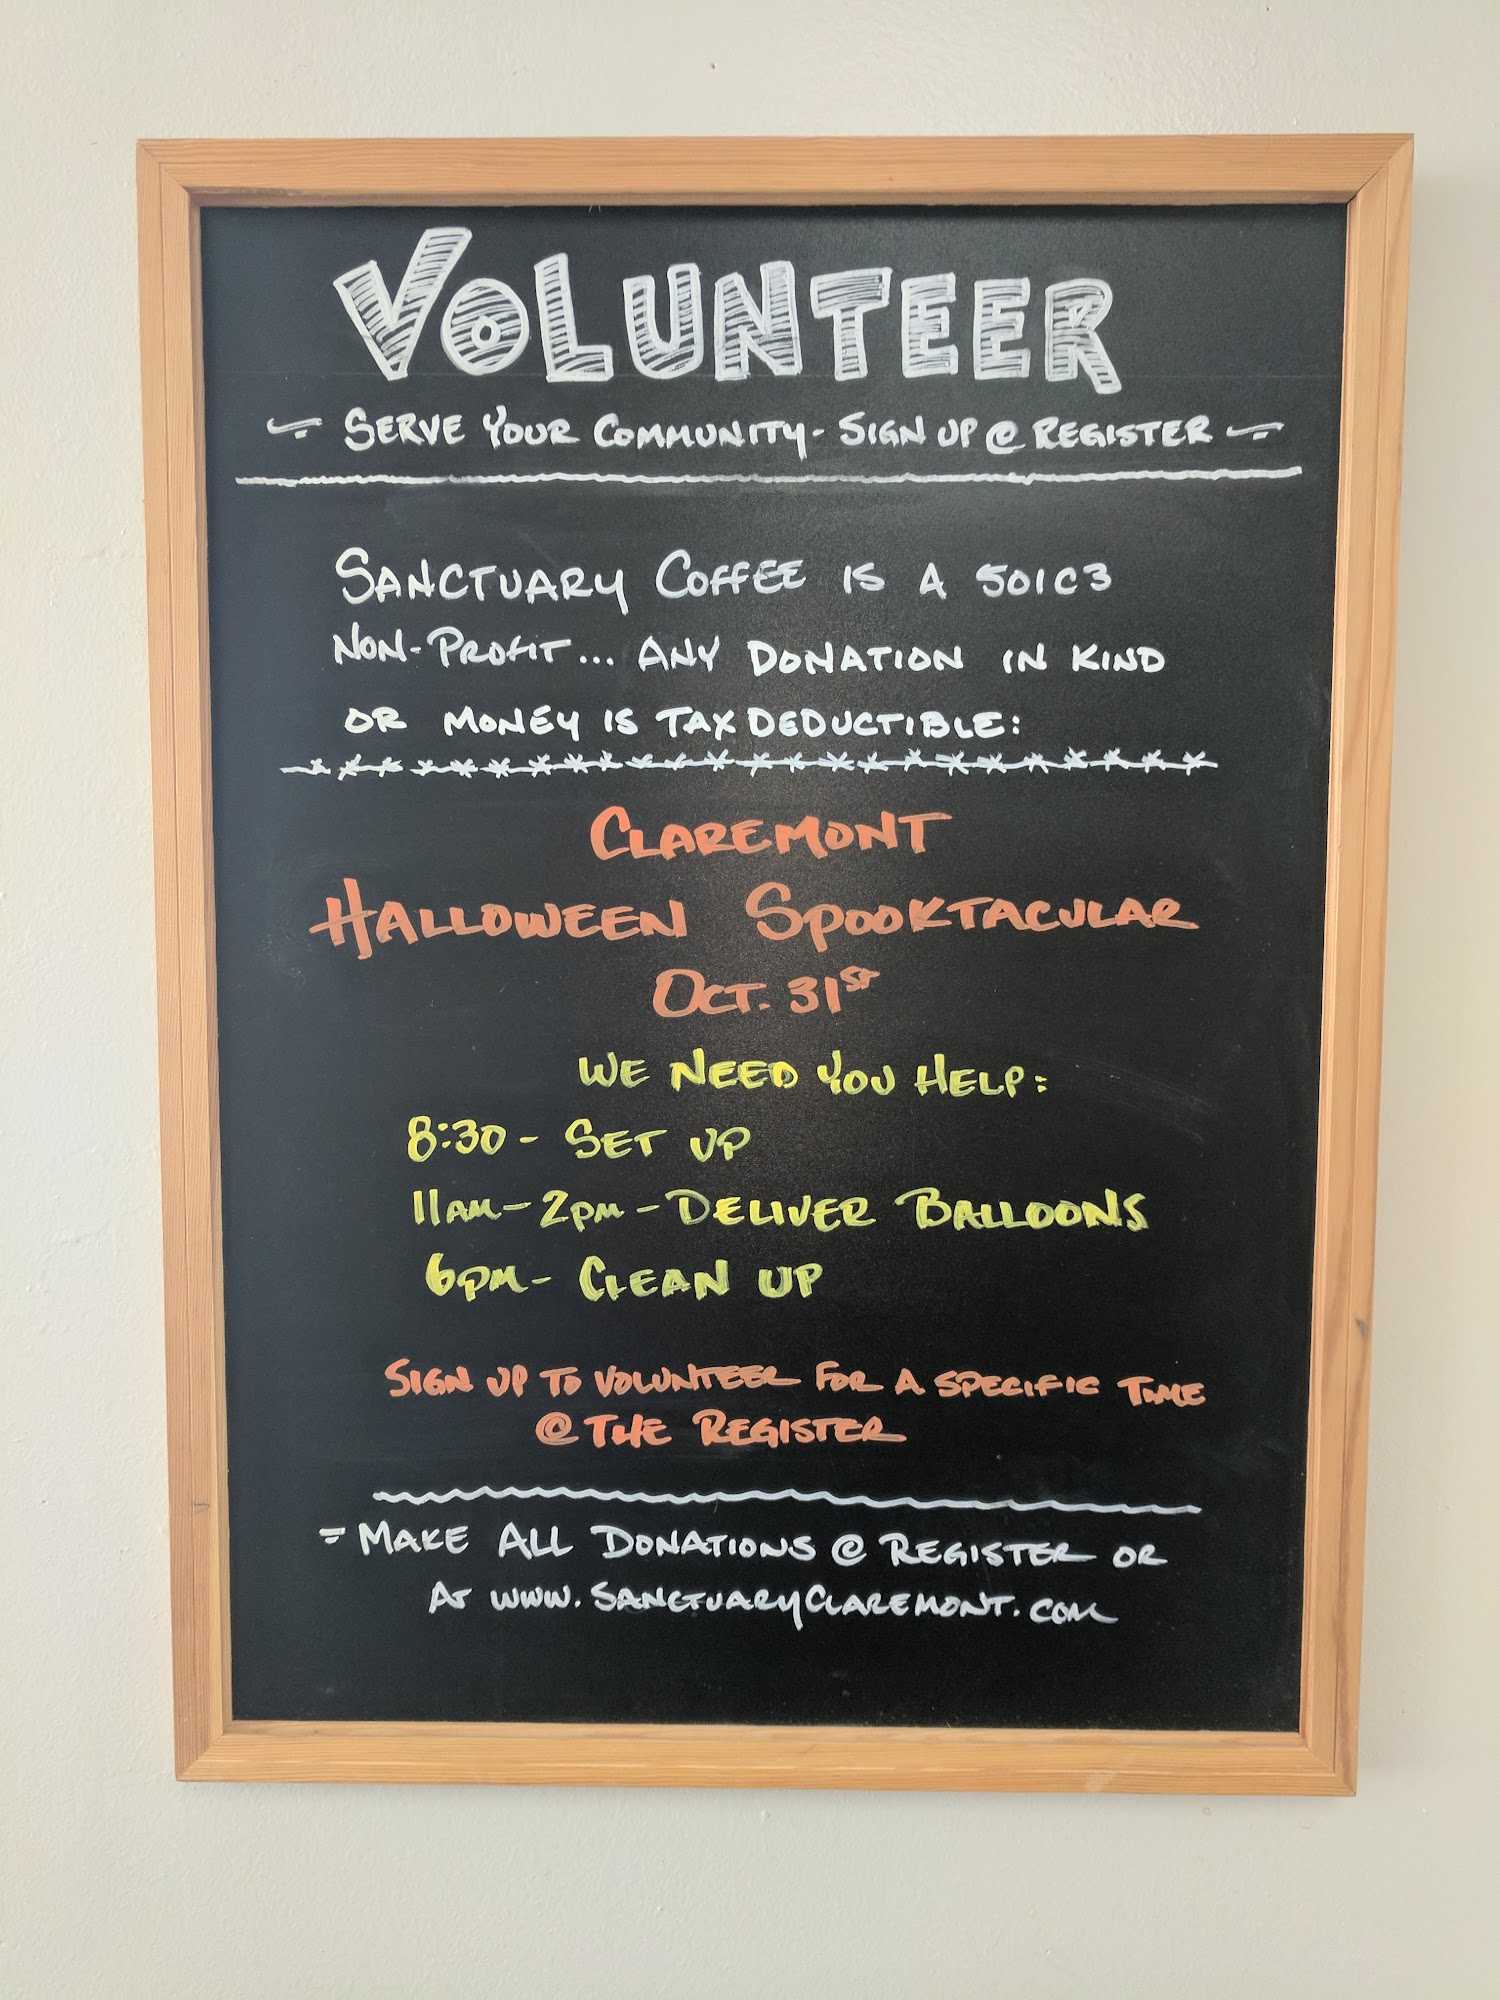 VOLUNTEER
~ SERVE YOUR COMMUNITY - SIGN UP @ REGISTER ~
SANCTUARY COFFEE IS A 501C3
NON-PROFIT... ANY DONATION IN KIND
OR MONEY IS TAX DEDUCTIBLE:
CLAREMONT
HALLOWEEN SPOOKTACULAR
OCT. 31st
WE NEED YOU HELP:
8:30 - SET UP
11AM - 2PM - DELIVER BALLOONS
6PM - CLEAN UP
SIGN UP TO VOLUNTEER FOR A SPECIFIC TIME
@ THE REGISTER
MAKE ALL DONATIONS @ REGISTER OR
AT WWW.SANCTUARYCLAREMONT.COM